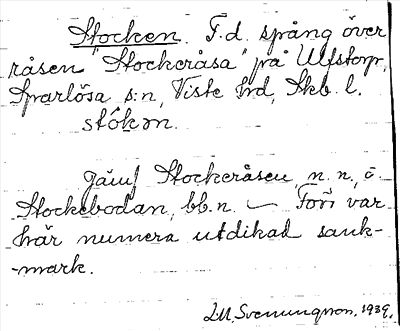 Stocken. F.d. spång över
råsen "Stockeråsa" på Ulfstorp,
Sparlösa s:n, Viste hd, Skb. l.
stôkɘn.
Jämf Stockeråsen, n. n., o.
Stockebodan, bb. n. — Förr var
här numera utdikad sank-
-mark.
I.M. Svenungsson. 1939.